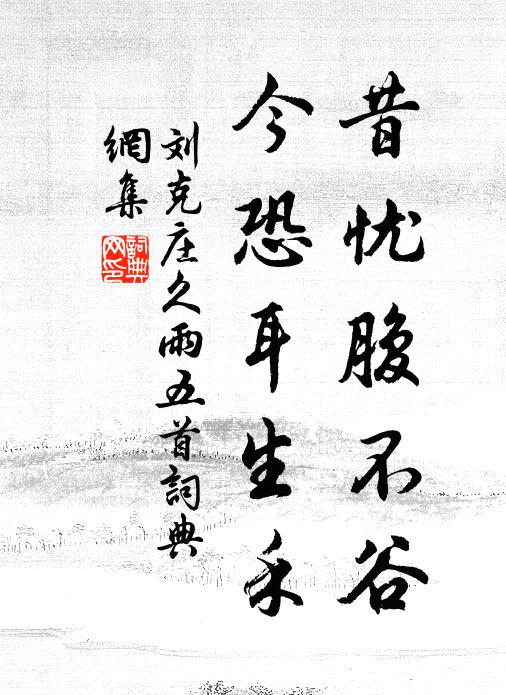 昔忧腹不谷
今恐耳生禾
刘克庄久雨五首詞典
網集
詞典
网印